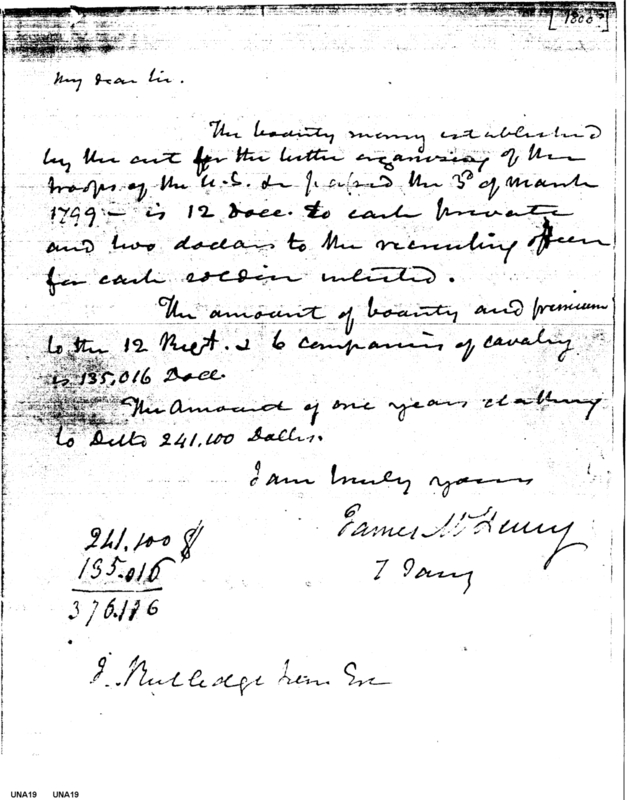 [1800?]
My dear Sir.
The bounty money established
by the act for the better organising of the
troops of the U.S. &c passed the 3d of March
1799 - is 12 Doll. to each private
and two dollars to the recruiting officer
for each soldier inlisted.
The amount of bounty and premium
to the 12 Regt. & 6 companies of cavalry
is 135,016 Doll.
The Amount of one years clothing
to Ditto 241,100 Dollrs.
I am truly yours
James McHenry
7 Jany
241.100 $
135.016
376.116
J. Rutledge Junr Esr
UNA19 UNA19